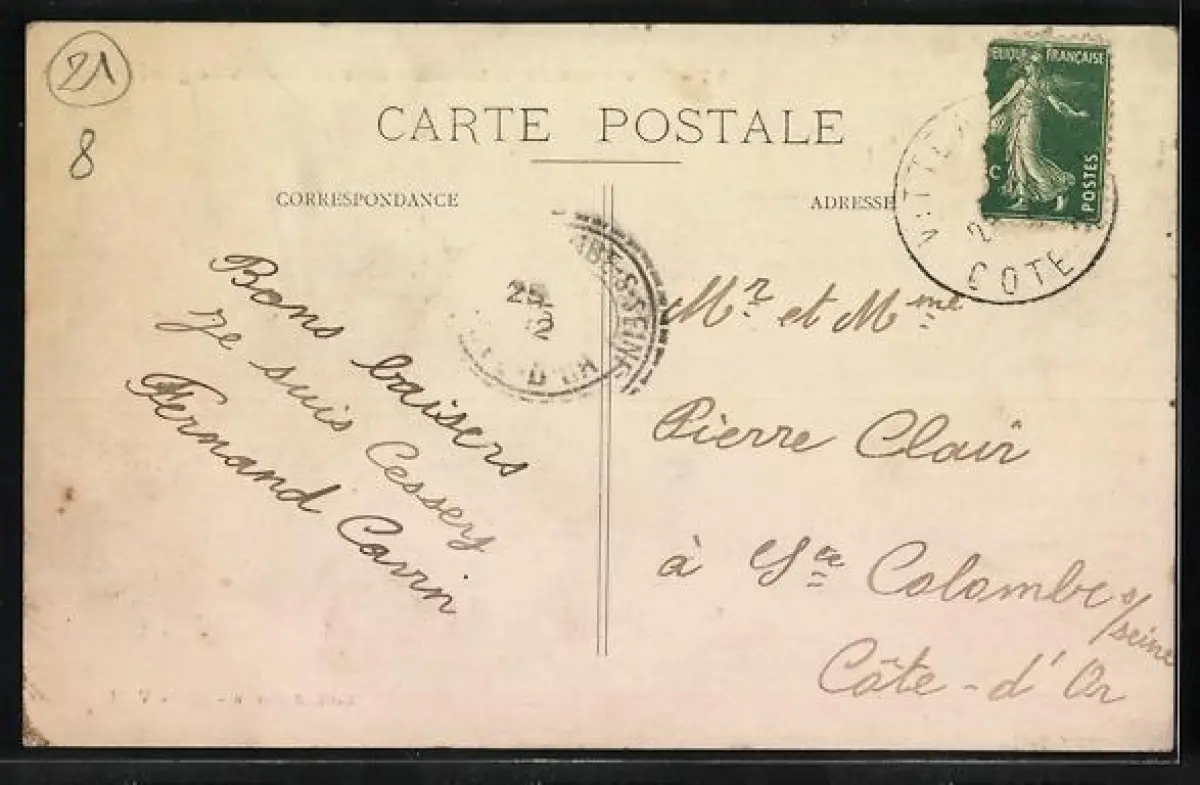 21
8
CARTE POSTALE
CORRESPONDANCE
ADRESSE
ELIQUE FRANÇAISE
C
POSTES
VITTE
2
COTE
MBE-S-SEINE
25
Bons baisers
je suis Cessey
Fernand Cavin
Mr et Mme
Pierre Clair
à Ste Colombe s/seine
Côte-d'Or